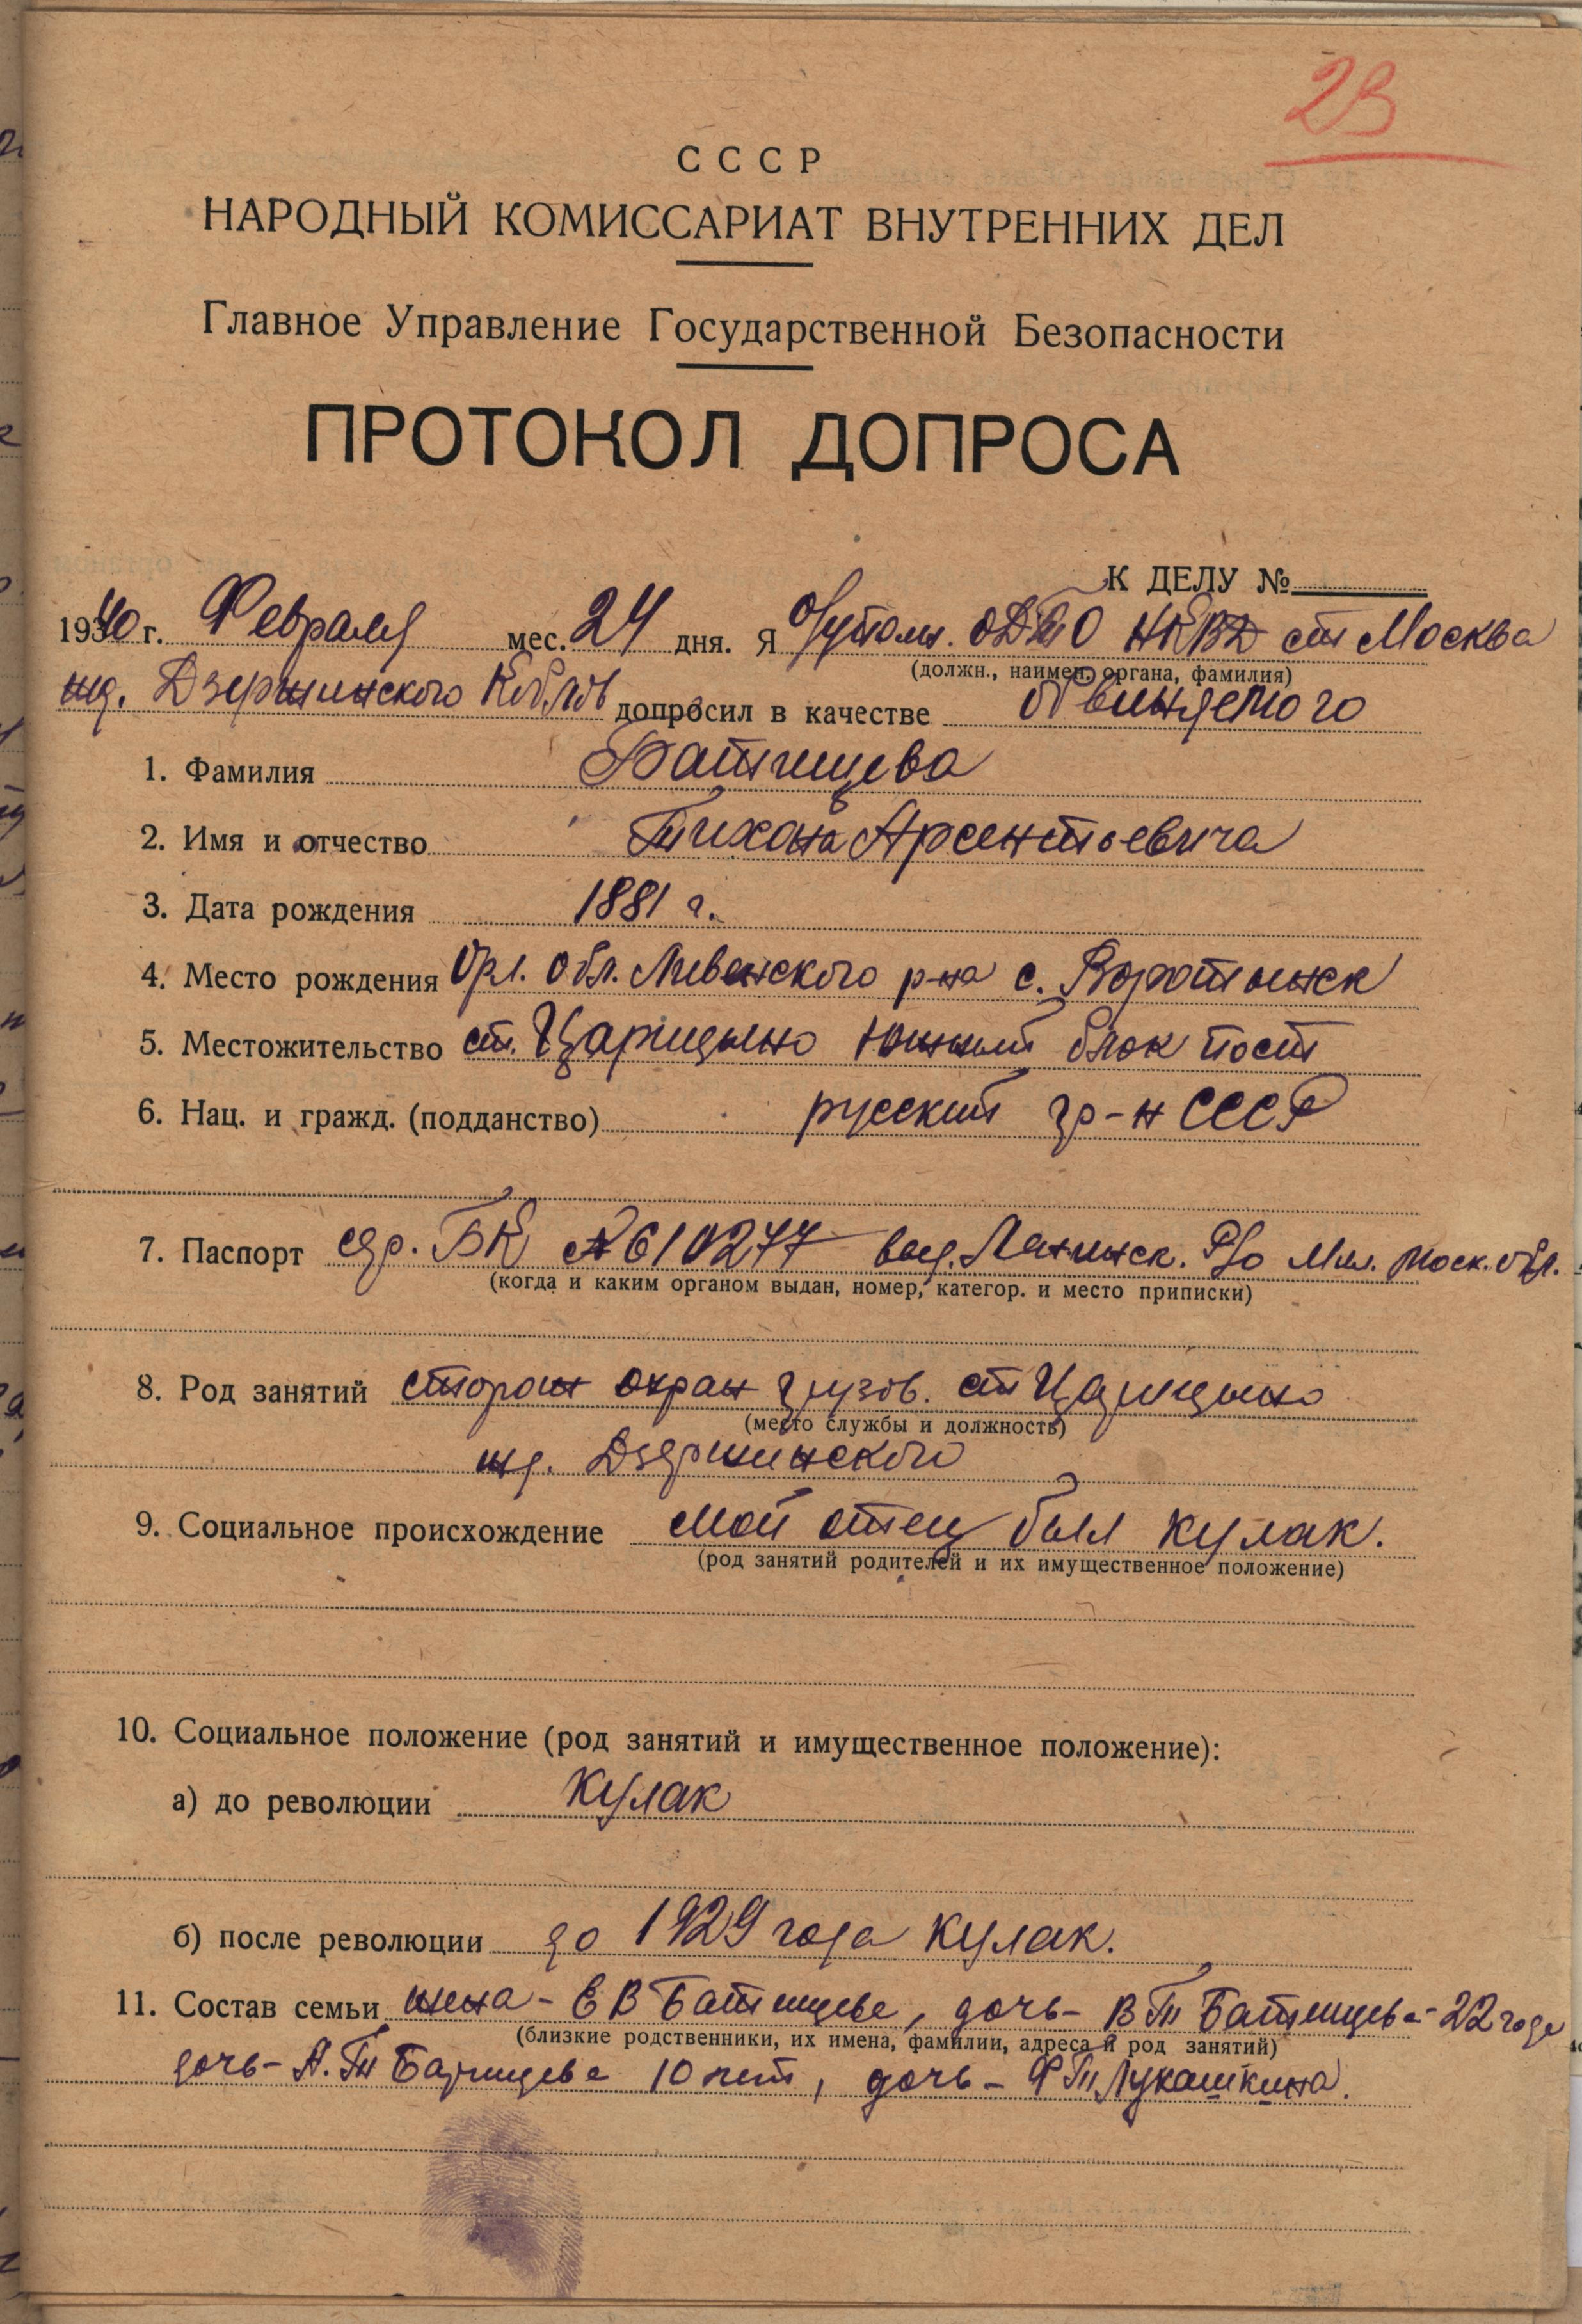 23
СССР
НАРОДНЫЙ КОМИССАРИАТ ВНУТРЕННИХ ДЕЛ
Главное Управление Государственной Безопасности
ПРОТОКОЛ ДОПРОСА
К ДЕЛУ №
1940 г. Февраля мес. 24 дня. Я О/уполн. НКВД ст Москва
(должн., наимен. органа, фамилия)
жд. Дзержинского допросил в качестве обвиняемого
1. Фамилия Батищева
2. Имя и отчество Тихона Арсентьевича
3. Дата рождения 1881 г.
4. Место рождения Орл. обл. Ливенского р-на с. Воротынск
5. Местожительство ст. Царицыно южный блок пост
6. Нац. и гражд. (подданство) русский гр-н СССР
7. Паспорт БК № 610277 выд. Ленинск. Р/о Мил. Моск. обл.
(когда и каким органом выдан, номер, категор. и место приписки)
8. Род занятий сторож охран грузов. ст Царицыно
(место службы и должность)
жд. Дзержинского
9. Социальное происхождение мой отец был кулак.
(род занятий родителей и их имущественное положение)
10. Социальное положение (род занятий и имущественное положение):
а) до революции кулак
б) после революции до 1929 года кулак.
11. Состав семьи жена - Е В Батищева, дочь - В Т Батищева - 22 года
(близкие родственники, их имена, фамилии, адреса и род занятий)
дочь - А. Т Батищева 10 лет, дочь - Ф Т Лукашкина.